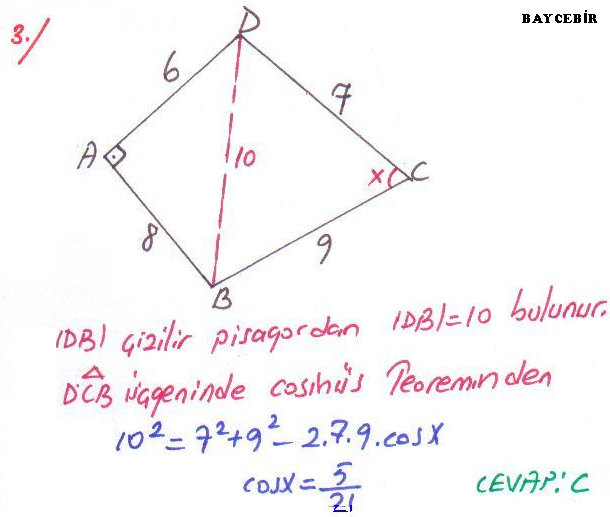 BAYCEBİR
3./
D
6
7
A
10
x
C
8
9
B
|DB| çizilir pisagordan |DB|=10 bulunur.
DCB üçgeninde cosinüs Teoreminden
10² = 7² + 9² - 2.7.9.cosx
cosx = 5/21
CEVAP: C